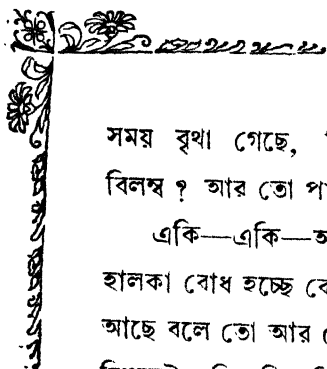 সময় বৃথা গেছে,
বিলম্ব ? আর তো
একি—একি—
হালকা বোধ হচ্ছে
আছে বলে তো আর